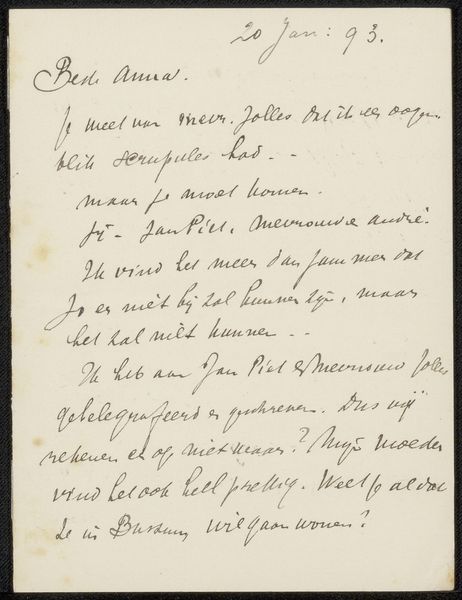 20 Jan: 93.
Beste Anna.
Je weet van Mevr. Jolles dat ik een oogen-
blik scrupules had. --
maar je moet komen.
Jij - Jan Piet, Mevrouw en André.
Ik vind het meer dan jammer dat
Jo er niet bij zal kunnen zijn, maar
het zal niet kunnen --
Ik heb aan Jan Piet & Mevrouw Jolles
getelegrafeerd en geschreven. Dus wij
rekenen er op niet waar? Mijn moeder
vind het ook heel prettig. Weet je al dat
Ze in Bussum wil gaan wonen?